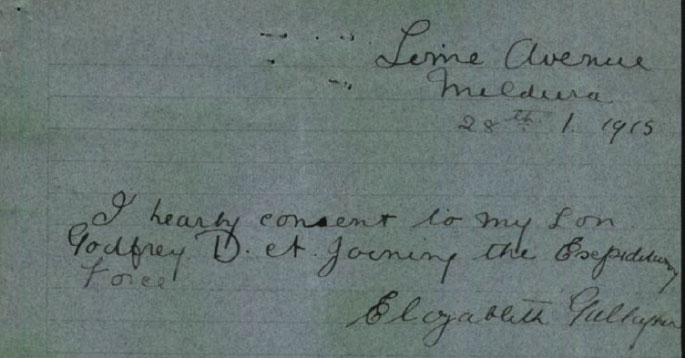 Lime Avenue
Mildura
28th 1. 1915
I hearty consent to my Son
Godfrey D. A. Joening the
Force
Elizabeth